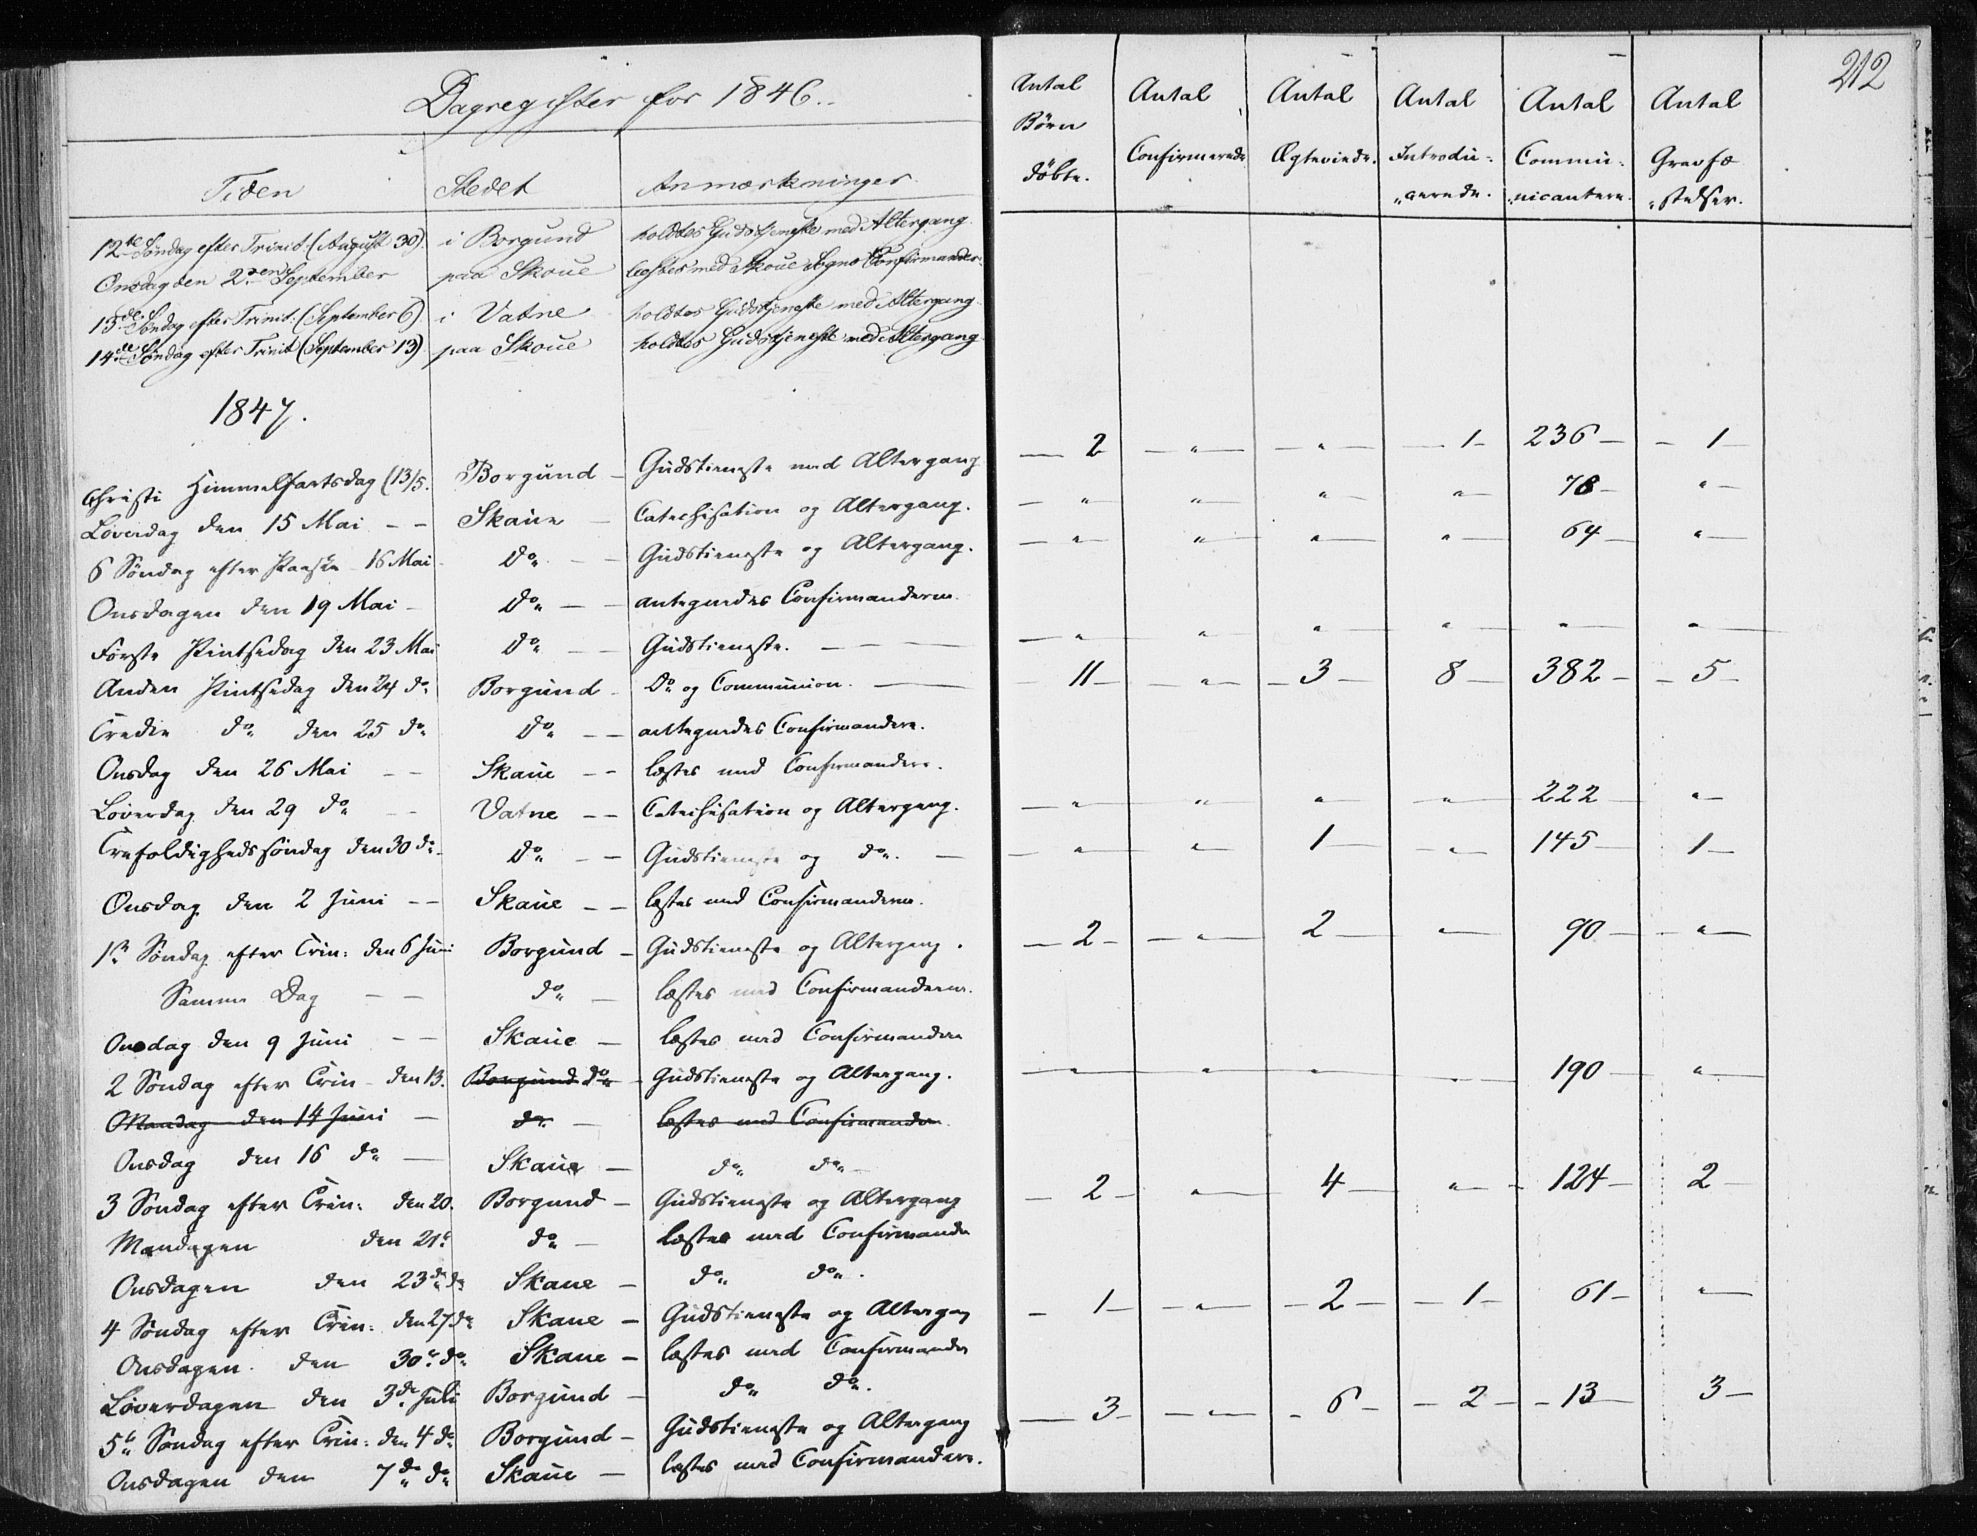 Dagregister for 1846.
212
Tiden Stedet Anmærkninger
Antal Børn döbte. Antal Confirmerede Antal Ægteviede. Antal Introdu-cerede. Antal Commu-nicantere. Antal Gravfæ-stelser.
12te Søndag efter Trinit. (August 30). i Borgund holdtes Gudstjeneste med Altergang.
Onsdag den 2den September paa Skoue læstes med Skoue Sogns Confirmander.
13de Søndag efter Trinit. (September 6) i Vatne holdtes Gudstjeneste med Altergang.
14de Søndag efter Trinit (September 13) paa Skoue holdtes Gudstjeneste med Altergang.
1847.
Christi Himmelfartsdag (13/5. Borgund – Gudstieneste med Altergang — 2 — „ — „ — 1 — 236 — 1 —
Løverdag den 15 Mai – – Skaue – Catechisation og Altergang. — „ — „ — „ — „ — 78 — „ —
6 Söndag efter Paaske 16 Mai Do – – Gudstieneste og Altergang. — „ — „ — „ — „ — 64 — „ —
Onsdagen den 19 Mai – Do – – antegnedes Confirmanderne.
Første Pintsedag den 23 Mai Do – – Gudstieneste. — „ — „ — „ — „ — „ — „ —
Anden Pintsedag den 24 do Borgund – Do og Communion. — 11 — „ — 3 — 8 — 382 — 5 —
Tredie do den 25 do Do – – antegnedes Confirmandere.
Onsdag den 26 Mai – – Skaue – – læstes med Confirmandere.
Løverdag den 29 do – – Vatne – – Catechisation og Altergang. — „ — „ — „ — „ — 222 — „ —
Trefoldighedssöndag den 30 do Do – – Gudstieneste og do. — „ — „ — 1 — „ — 145 — 1 —
Onsdag den 2 Juni – – Skaue – – læstes med Confirmanderne.
1ste Söndag efter Trin: den 6 Juni Borgund – Gudstieneste og Altergang. — 2 — „ — 2 — „ — 90 — „ —
Samme Dag – – do – læstes med Confirmanderne.
Onsdag den 9 Juni – – Skaue – læstes med Confirmandere
2 Söndag efter Trin – den 13. Borgund do – Gudstieneste og Altergang. — „ — „ — „ — „ — 190 — „ —
Mandag den 14 Juni – do – læstes med Confirmandere
Onsdag den 16 do – Skaue – do do –
3 Söndag efter Trin: den 20. Borgund – Gudstieneste og Altergang — 2 — „ — 4 — „ — 124 — 2 —
Mandagen den 21e do – læstes med Confirmande
Onsdagen den 23de do Skaue – do do.
4 Söndag efter Trin: den 27 do Skaue – Gudstieneste og Altergag — 1 — „ — 2 — 1 — 61 — „ —
Onsdagen den 30te do Skaue – læstes med Confirmander
Løverdagen den 3de Juli Borgund – do do.
5te Söndag efter Trin: den 4 do Borgund – Gudstieneste og Altergang — 3 — „ — 6 — 2 — 13 — 3 —
Onsdagen den 7de do Skaue – læstes med Confirmandere.